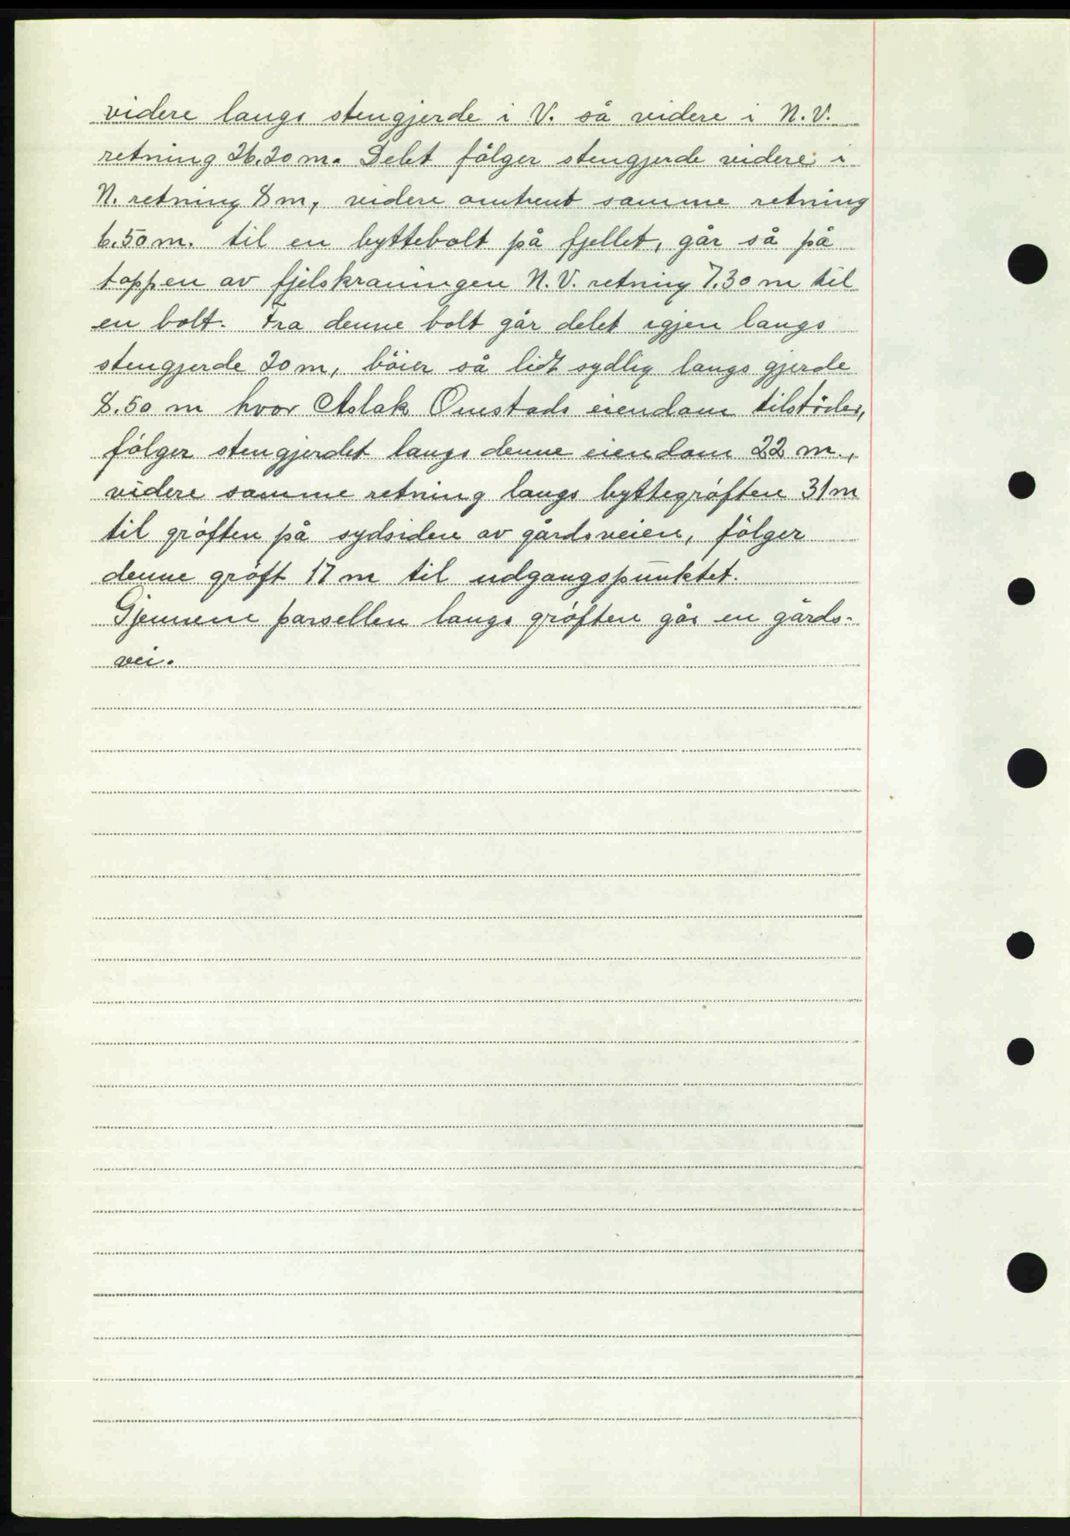 videre langs stengjerde i V. så videre i N.V.
retning 26.20 m. Delet følger stengjerde videre i
N. retning 8 m, videre omtrent samme retning
6.50 m. til en byttebolt på fjellet, går så på
toppen av fjelskraningen N.V. retning 7.30 m til
en bolt. Fra denne bolt går delet igjen langs
stengjerde 20 m, böier så lidt sydlig langs gjerde
8.50 m hvor Aslak Omstads eiendom tilstöder,
følger stengjerdet langs denne eiendom 22 m.,
videre samme retning langs byttegröften 31 m
til gröften på sydsiden av gårdsveien, fölger
denne gröft 17 m til udgangspunktet.
Gjennem parsellen langs gröften går en gårds-
vei.